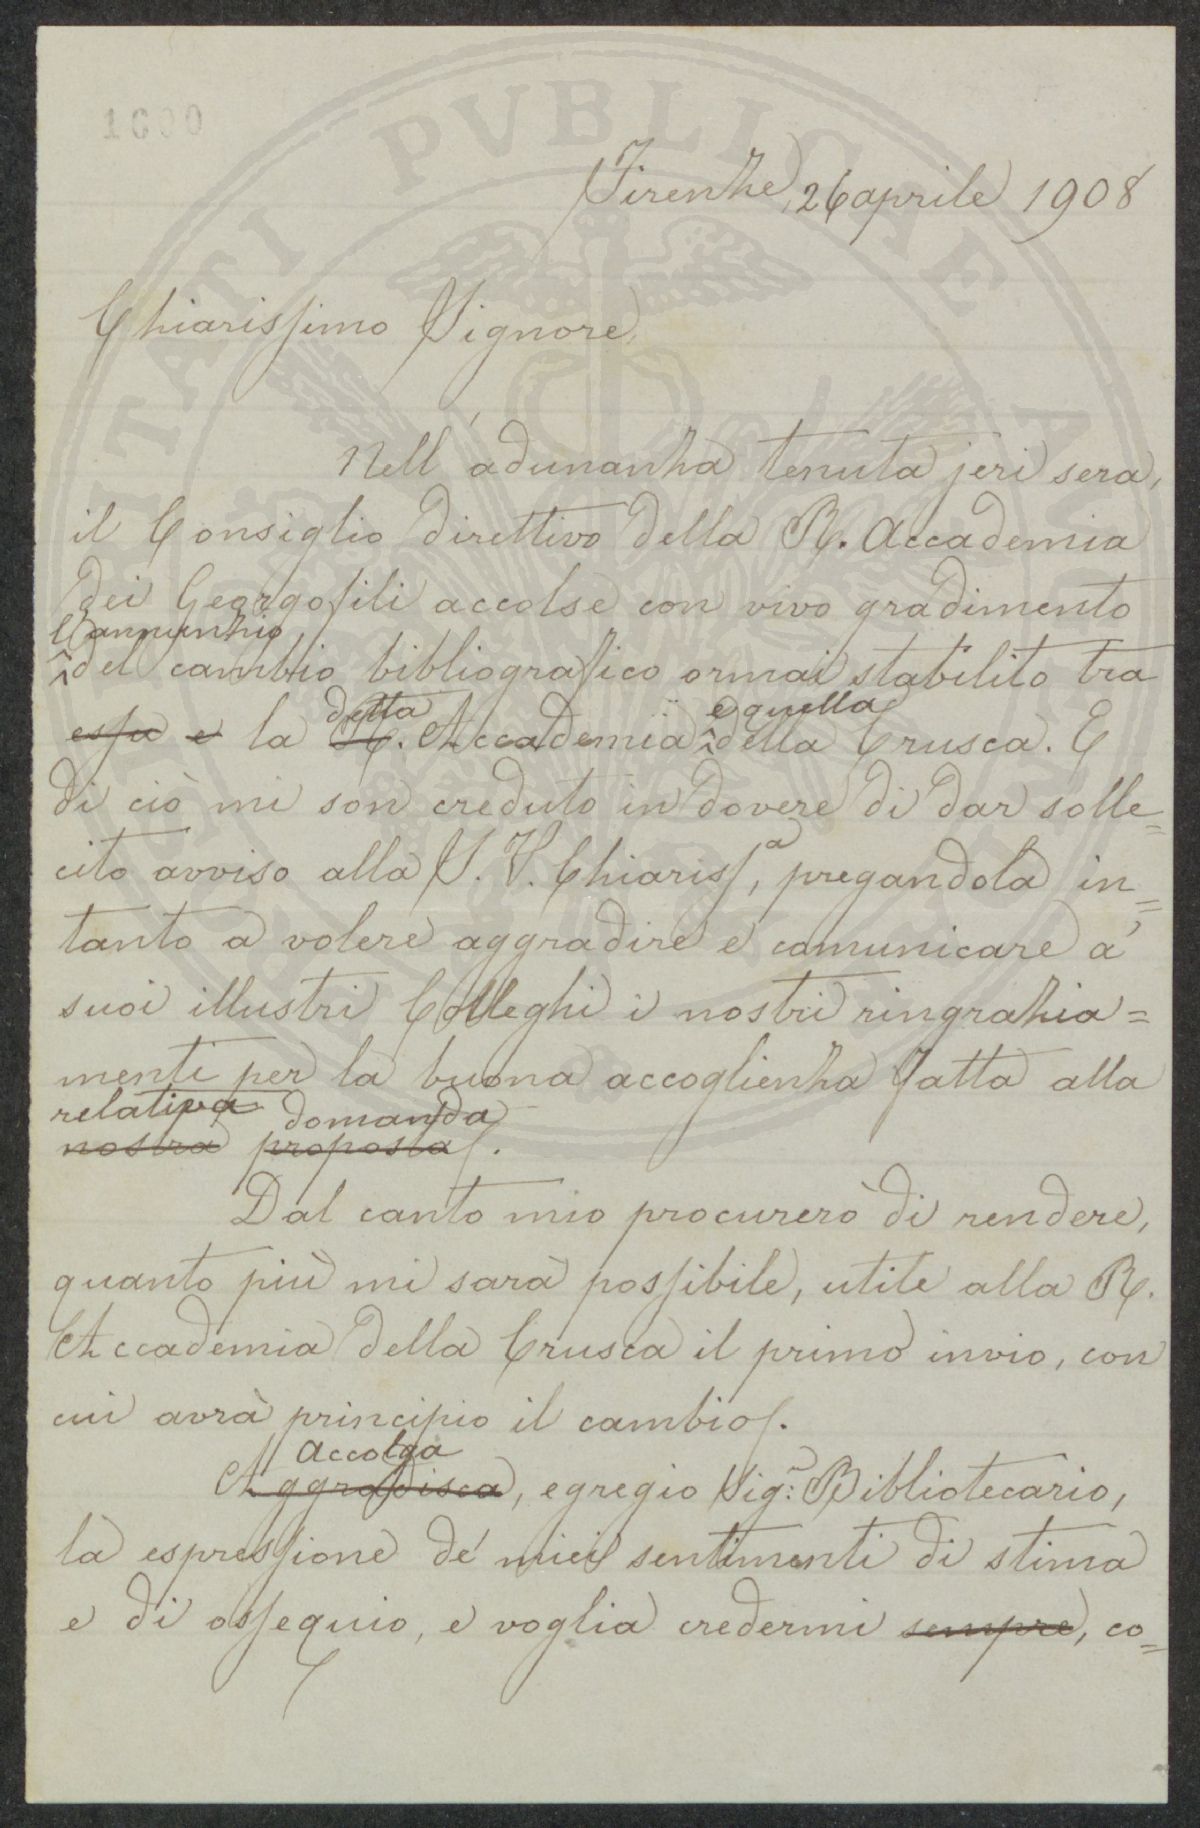 1600
PVBLICAE
Firenze, 26 aprile 1908
Chiarissimo Signore,
Nell'adunanza tenuta jeri sera,
il Consiglio direttivo della R. Accademia
dei Georgofili accolse con vivo gradimento
l'annunzio
del cambio bibliografico ormai stabilito tra
detta e quella
essa e la R. Accademia della Crusca. E
di ciò mi son creduto in dovere di dar solle=
cito avviso alla S. V. Chiariss.ª, pregandola in=
tanto a volere aggradire e comunicare a'
suoi illustri Colleghi i nostri ringrazia=
menti per la buona accoglienza fatta alla
relativa domanda
nostra proposta.
Dal canto mio procurerò di rendere,
quanto più mi sarà possibile, utile alla R.
Accademia della Crusca il primo invio, con
cui avrà principio il cambio.
Accolga
Aggradisca, egregio Sig.r Bibliotecario,
la espressione de' miei sentimenti di stima
e di ossequio, e voglia credermi sempre, co=